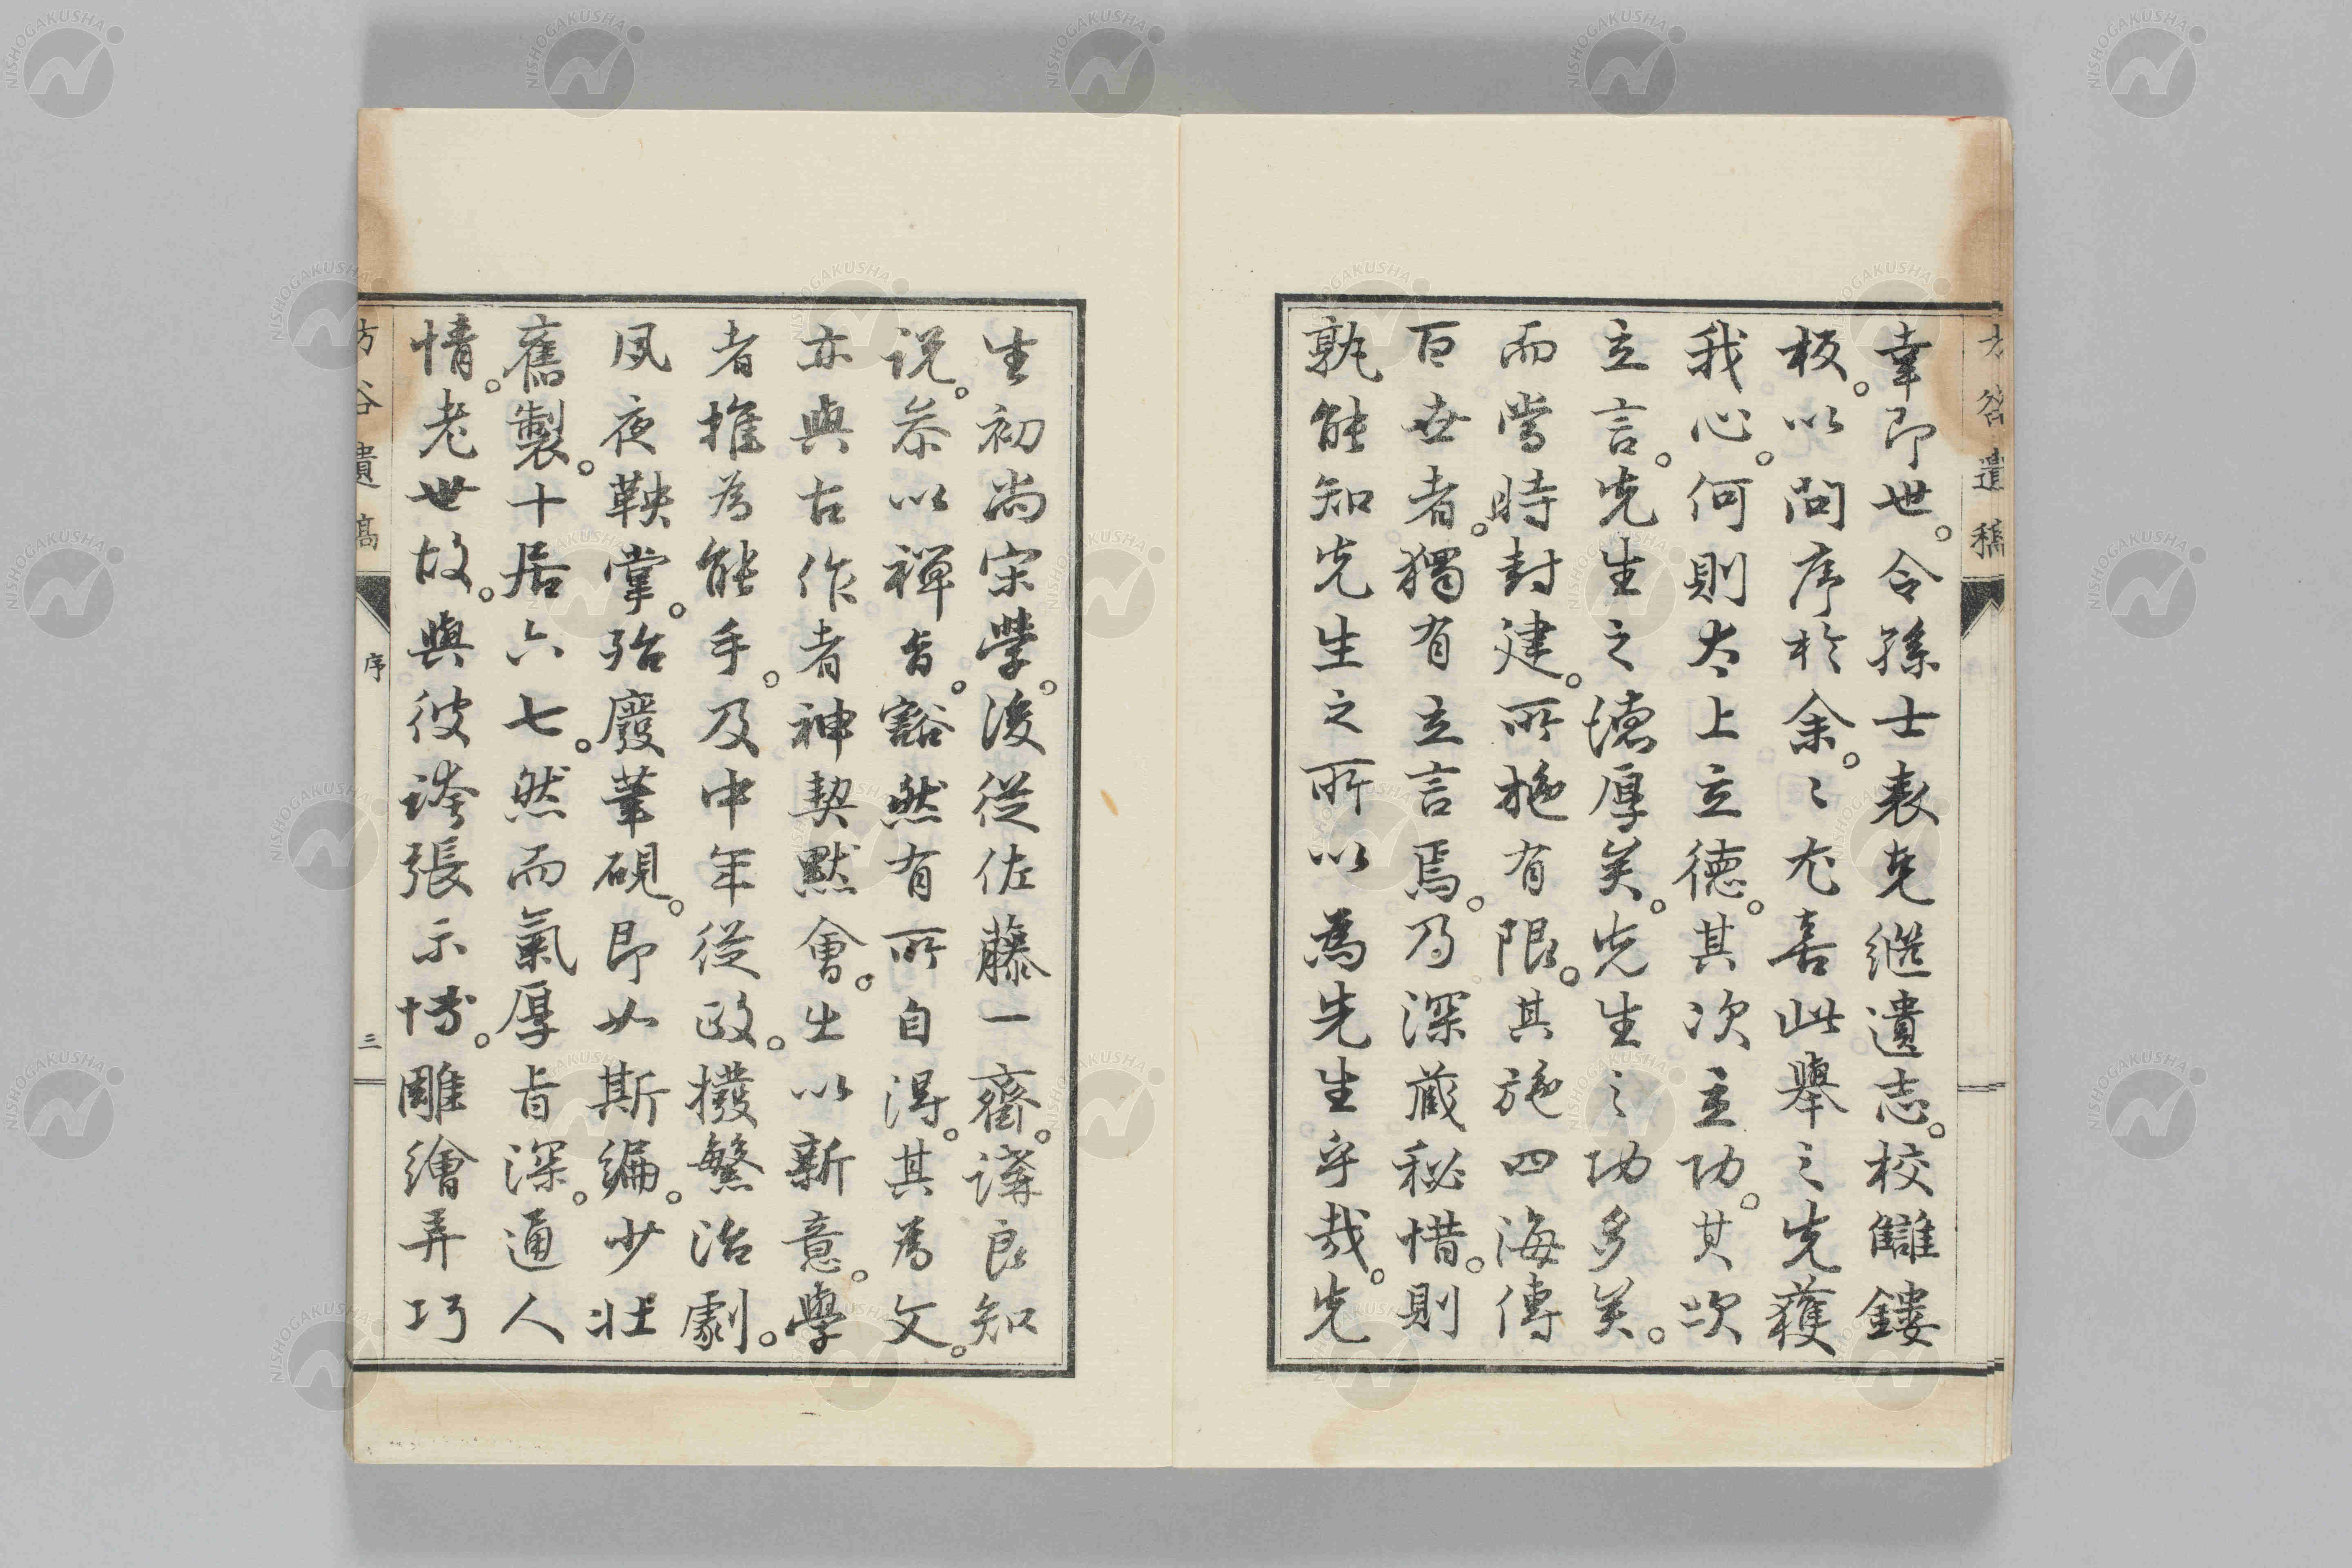 幸即世。令孫士表克繼遺志。校讎鏤
板。以問序於余。〻尤喜此舉之先獲
我心。何則太上立德。其次立功。其次
立言。先生之德厚矣。先生之功多矣。
而當時封建。所施有限。其施四海傳
百世者。獨有立言焉。乃深藏秘惜。則
孰能知先生之所以為先生乎哉。先
生初尚宋學。後從佐藤一齋。講良知
說。參以禪旨。豁然有所自得。其為文。
亦與古作者神契默會。出以新意。學
者推為能手。及中年從政。撥繁治劇。
夙夜鞅掌。殆廢筆硯。即如斯編。少壯
舊製。十居六七。然而氣厚旨深。通人
情。老世故。與彼誇張示博。雕繪弄巧
方谷遺稿
序
三